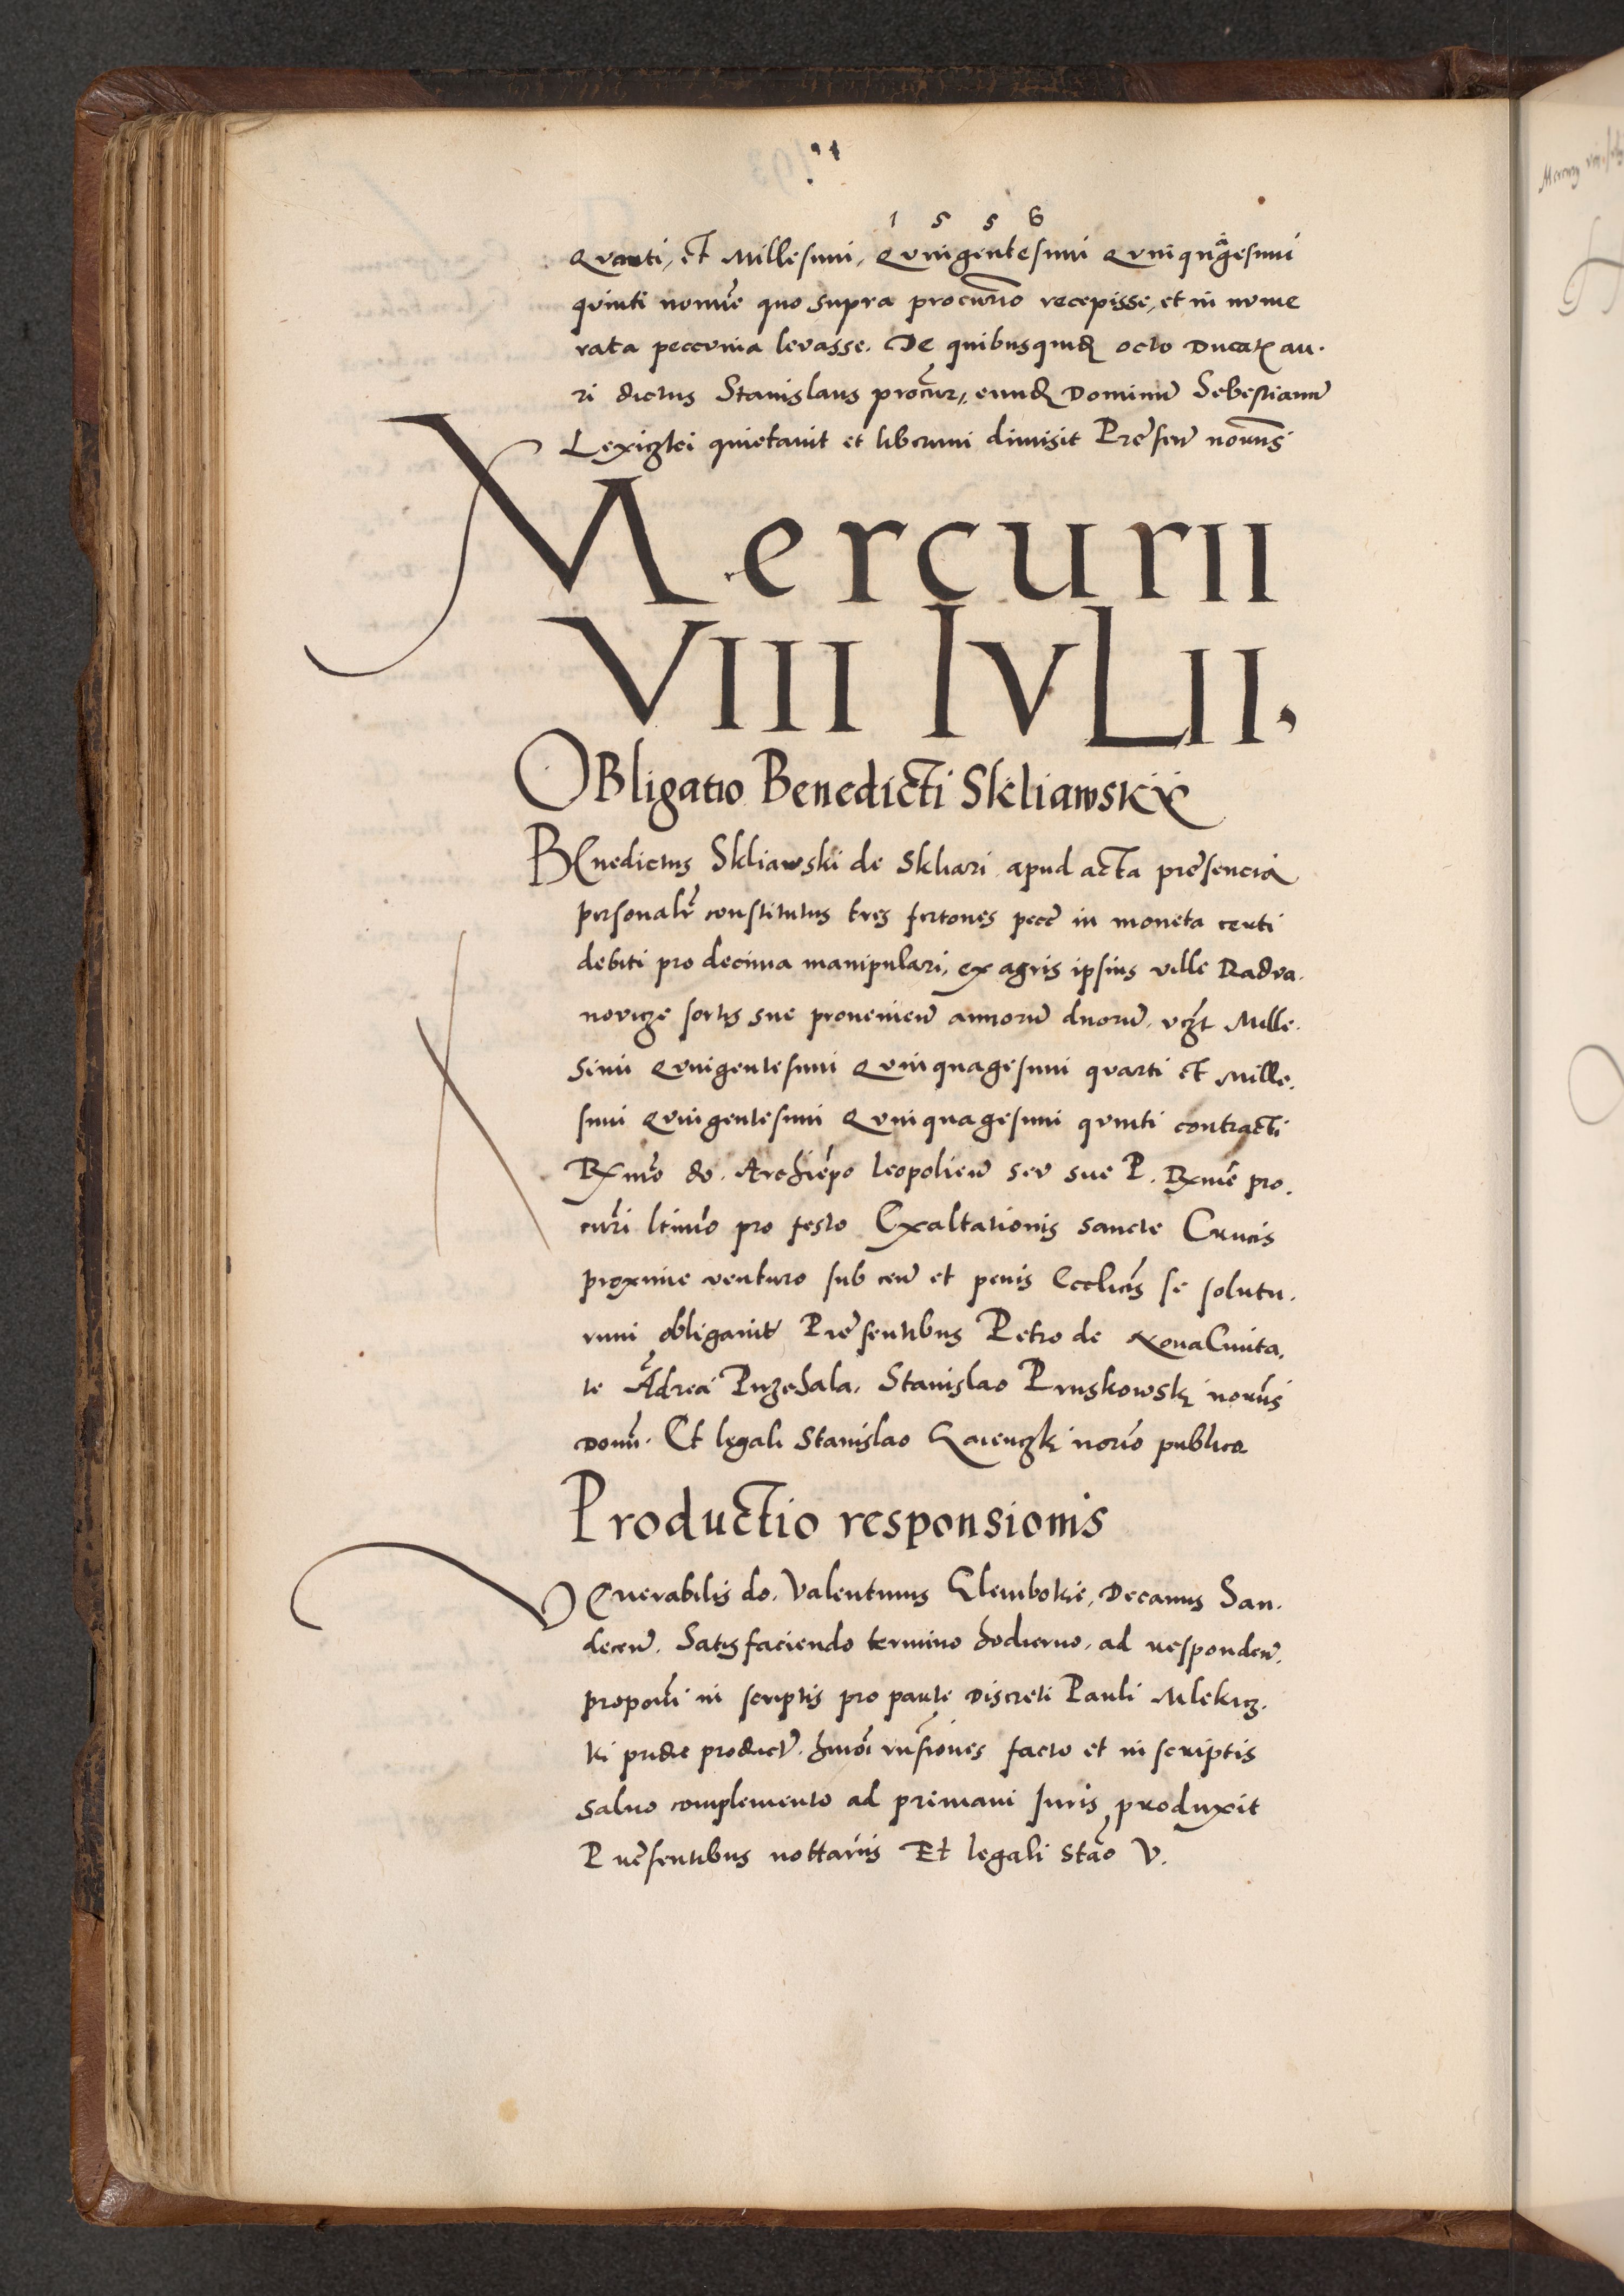 1 5 5 6
Quarti, et Millesimi, Quingentesimi Quinquagesimi
quinti nomīe quo supra procur̄io recepisse, et in nume
rata peccunia levasse. De quibusquidē octo Ducatꝭ au.
ri dictus Stanislaus procūr, eundē Dominū Sebestianū
quietavit et liberum dimisit Pn̄tsen̄ notariis
Mercurii
VIII IVLII.
OBligatio Benedicti Skliawskÿ
BEnedictus Skliawski de Skliari apud acta presencia
personalr̄ constitutus tres fertones pecc̄ in moneta certi
debiti pro decima manipulari, ex agris ipsius ville Radva.
novicze sortis sue provenien̄ annorū duorū, vcꝫt Mille.
simi Quingentesimi Quinquagesimi quarti et Mille.
simi Quingentesimi Quinquagesimi quinti contracti
Rx̄mo do. Archiēpo leopolien̄ seu sue P. Rx̄me pro.
cur̄i ltim̄o pro festo Exaltationis sancte Crucis
proxime venturo sub cen̄ et penis Ecclīcis se solutu.
rum obligavit Pre̅sentibus Petro de NovaCivita.
te Ādrea Przechala, Stanislao Pruskowskį nor̄iis
Et legali Stanislao nor̄io publico
Productio responsionis
VEnerabilis do. Valentinus Glembokie, Decanus San.
decen̄. Satisfaciendo termino hodierno, ad responden̄.
in scriptis pro parte Discreti Pauli Mlekicz.
ki pridie product̄. hmōi rn̄siones facto et in scriptis
salvo complemento ad primam Iuris produxit
Pre̅sentibus nottariis Et legali Stāo V.